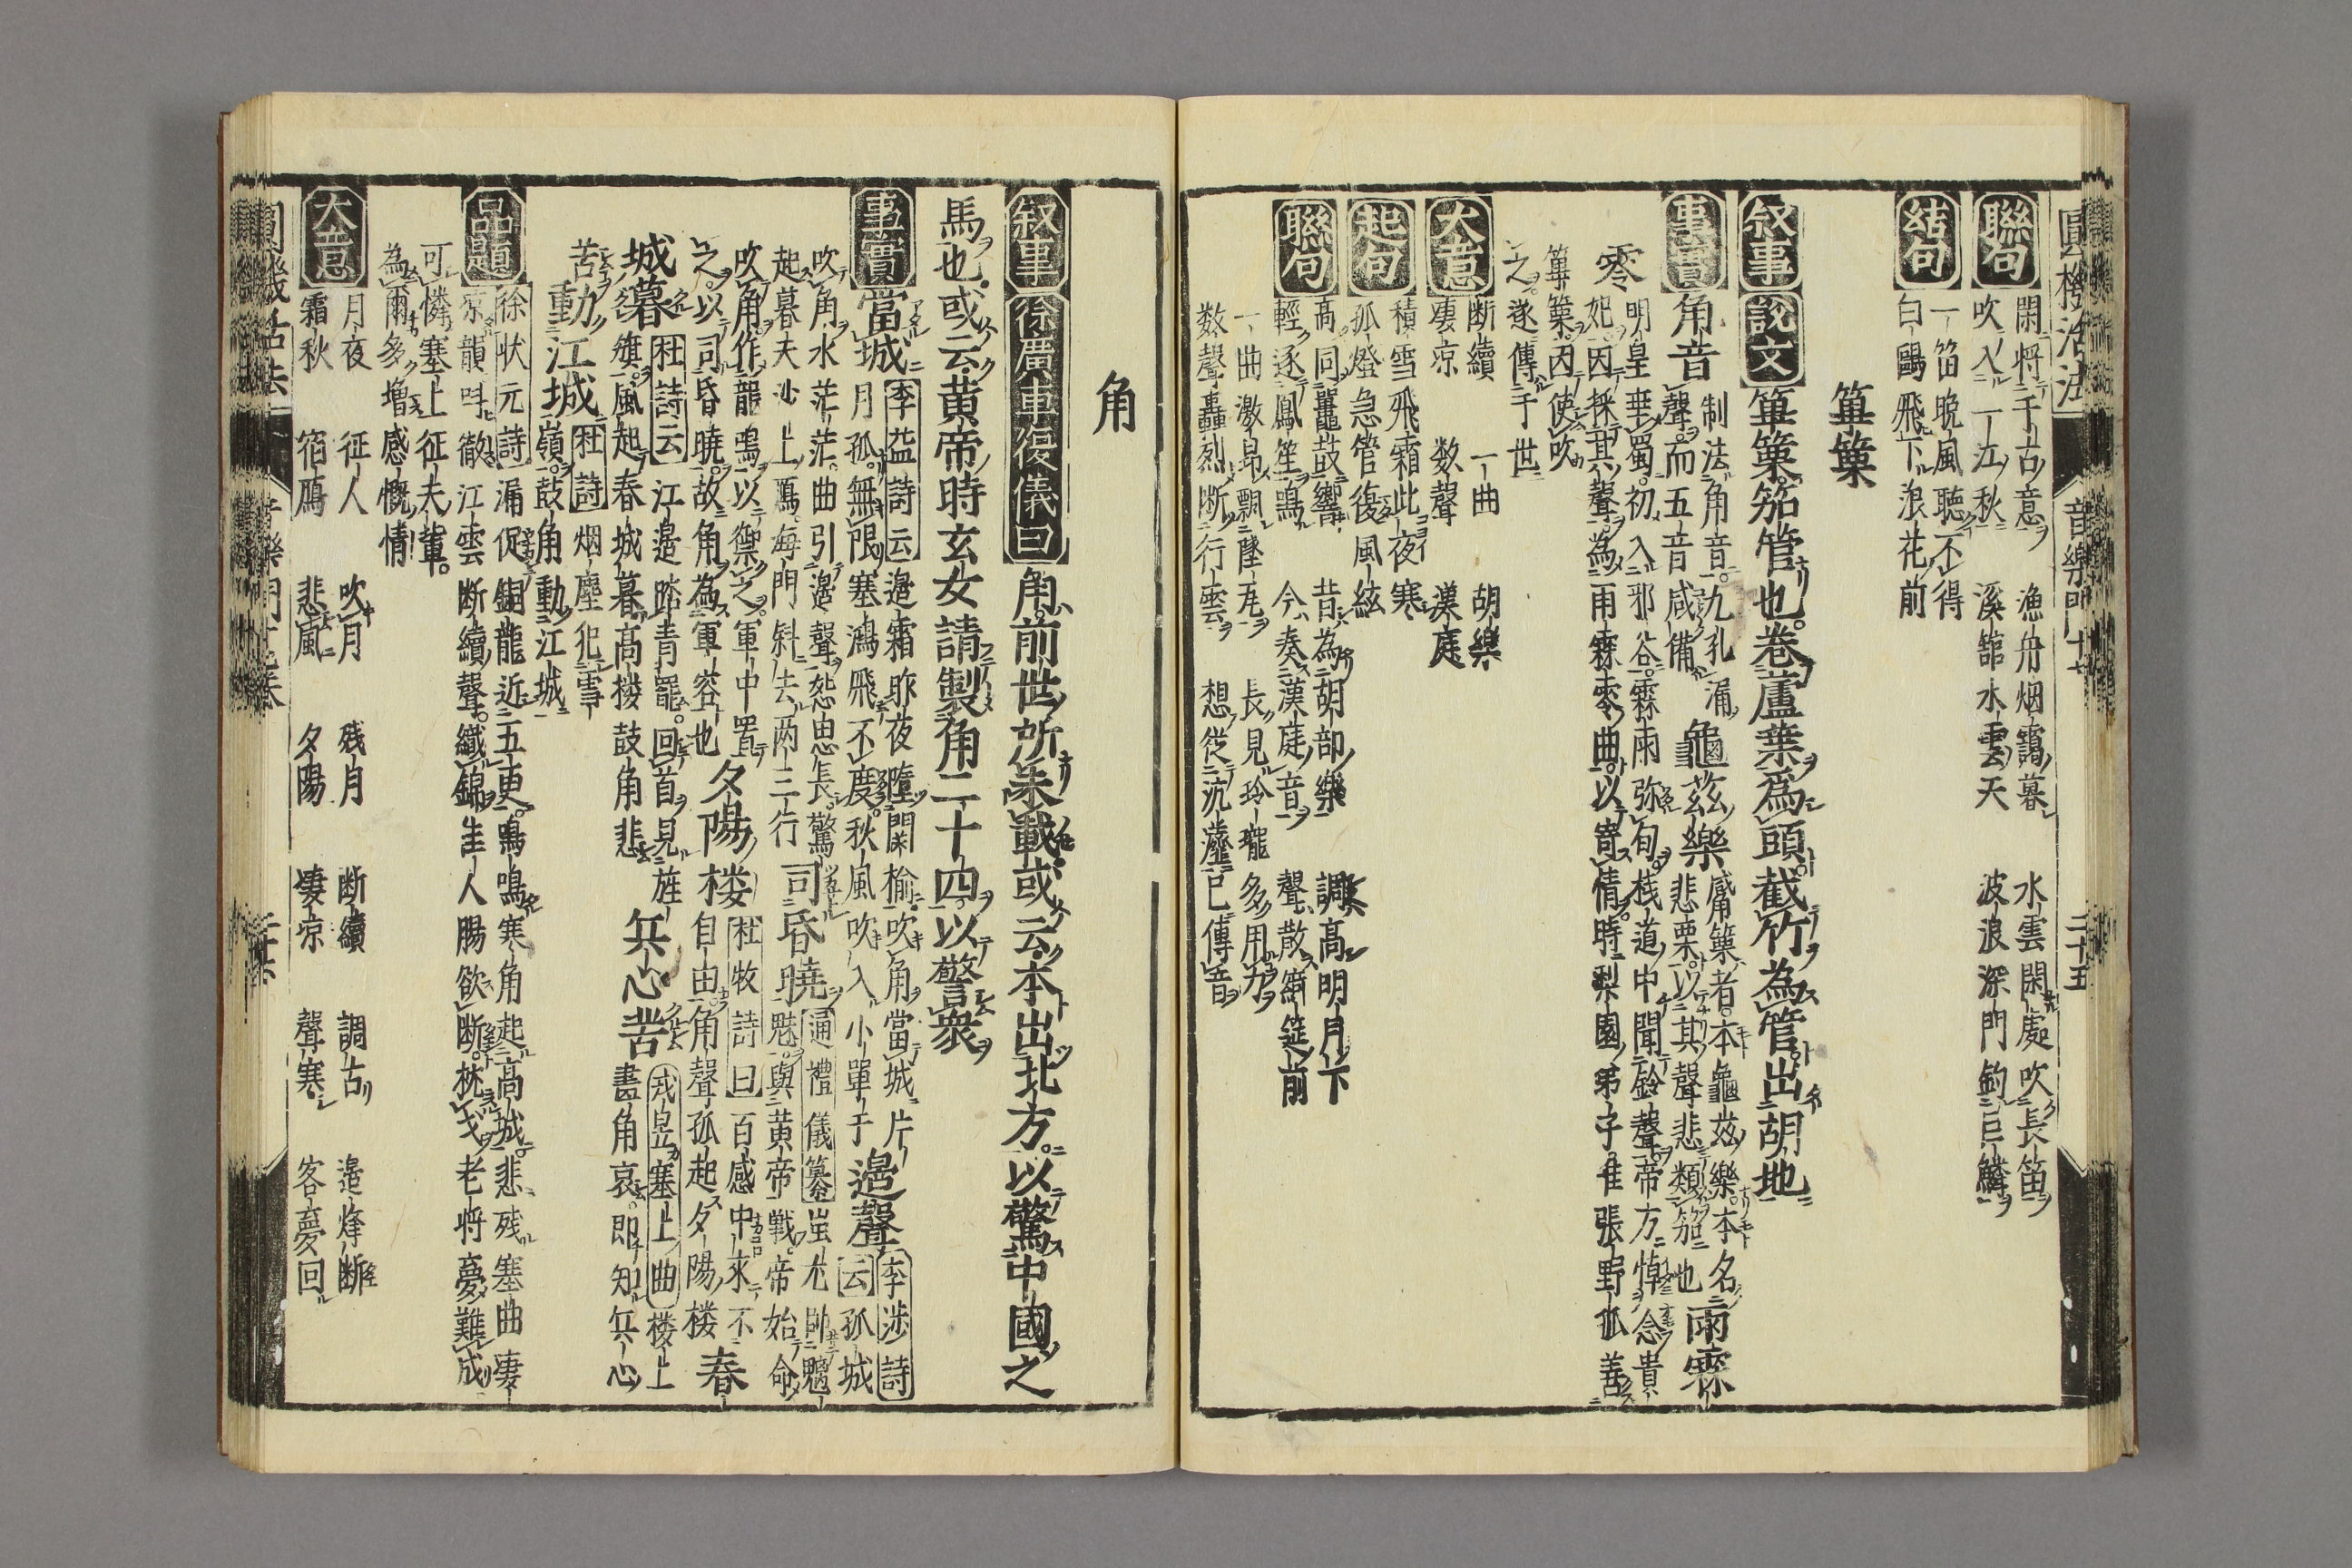 圓機活法 音樂門十七 二十五
聯句 閑将千古意 漁舟烟靄暮 水雲閑處吹長笛
吹入一江秋 溪舘水雲天 波浪深門釣巨鱗
結句 一笛晩風聴不得
白鷗飛下浪花前
篳篥
叙事 説文 篳篥笳管也巻蘆葉爲頭截竹為管出胡地
事實 角音 制法角音九孔漏
聲而五音咸備 龜茲樂 觱篥者本龜茲樂本名
悲栗以其聲悲類笳也 雨霖
零 明皇幸蜀初入邪谷霖雨弥旬桟道中聞鈴聲帝方悼念貴
妃因採其聲為雨霖零曲以寄情時梨園弟子隹張野狐善
篳篥因使吹
之遂傳于世
大意 断續 一曲 胡樂
凄凉 数聲 漢庭
起句 積雪飛霜此夜寒
孤燈急管復風絃
聯句 高同鼉鼓響 昔為胡部樂 調高明月下
輕逐鳳笙鳴 今奏漢庭音 聲散綺筵前
一曲激昂飄墜瓦 長見玲瓏多用力
数聲轟烈断行雲 想從沉灋已傳音
角
叙事 徐廣車復儀曰 角前世所未載或云本出北方以驚中國之
馬也或云黄帝時玄女請製角二十四以警衆
事實 當城 李益詩云 邉霜昨夜墮関榆吹角當城片
月孤無限塞鴻飛不度秋風吹入小單于 邉聲 李渉詩
云 孤城
吹角水茫茫曲引邉聲怨思長驚
起暮天沙上鴈海門斜去両三行 司昏曉 通禮儀纂 蚩尤帥魑
魅與黄帝戦帝始命
吹角作龍鳴以禦之軍中置
之以司昏曉故角為軍容也 夕陽楼 杜牧詩曰 百感中來不
自由角聲孤起夕陽楼 春
城暮 杜詩云 江邉踏青罷回首見旌
旗風起春城暮高楼鼓角悲 兵心苦 戎昱塞上曲 楼上
畫角哀即知兵心
苦 動江城 杜詩 烟塵犯雪
嶺鼓角動江城
品題 徐状元詩 漏促銅龍近五更鳴鳴寒角起高城悲残塞曲凄
凉韻呌徹江雲断續聲織錦隹人腸欲断枕戈老将夢難成
可憐塞上征夫輩
為爾多増感慨情
大意 月夜 征人 吹月 残月 断續 調古 邉烽断
霜秋 宿鴈 悲風 夕陽 凄凉 聲寒 客夢回
圓機活法